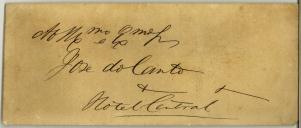 Ao Illmo e Exmo Snr
José do Canto
Hotel Central